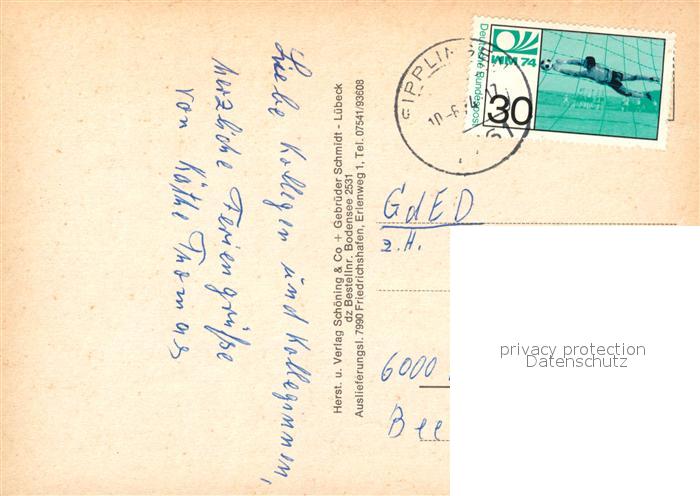 Liebe Kollegen und Kolleginnen,
herzliche Feriengrüße
von Käthe Thomas
Herst. u. Verlag Schöning & Co + Gebrüder Schmidt - Lübeck
dz Bestellnr. Bodensee 2531
Auslieferungsl. 7990 Friedrichshafen, Erlenweg 1, Tel. 07541/93608
WM 74
Deutsche Bundespost
30
GdED
z.H.
6000
privacy protection
Datenschutz